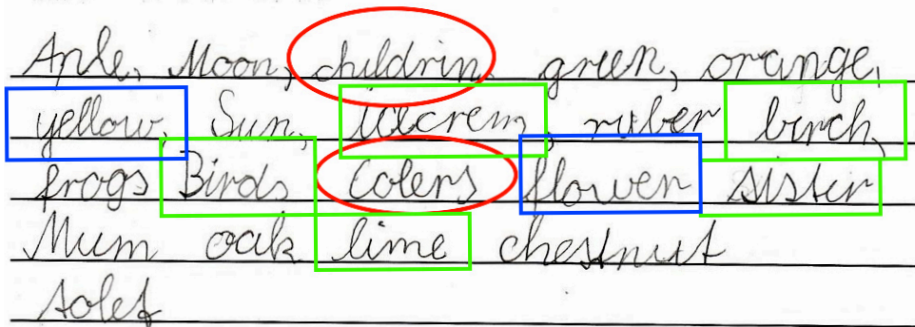 Anle, Moon, childrin, green, orange,
yellow, Sun, icecrem, ruber birch,
frogs Birds Colers flower sister
Mum oak lime chestnut
tolet